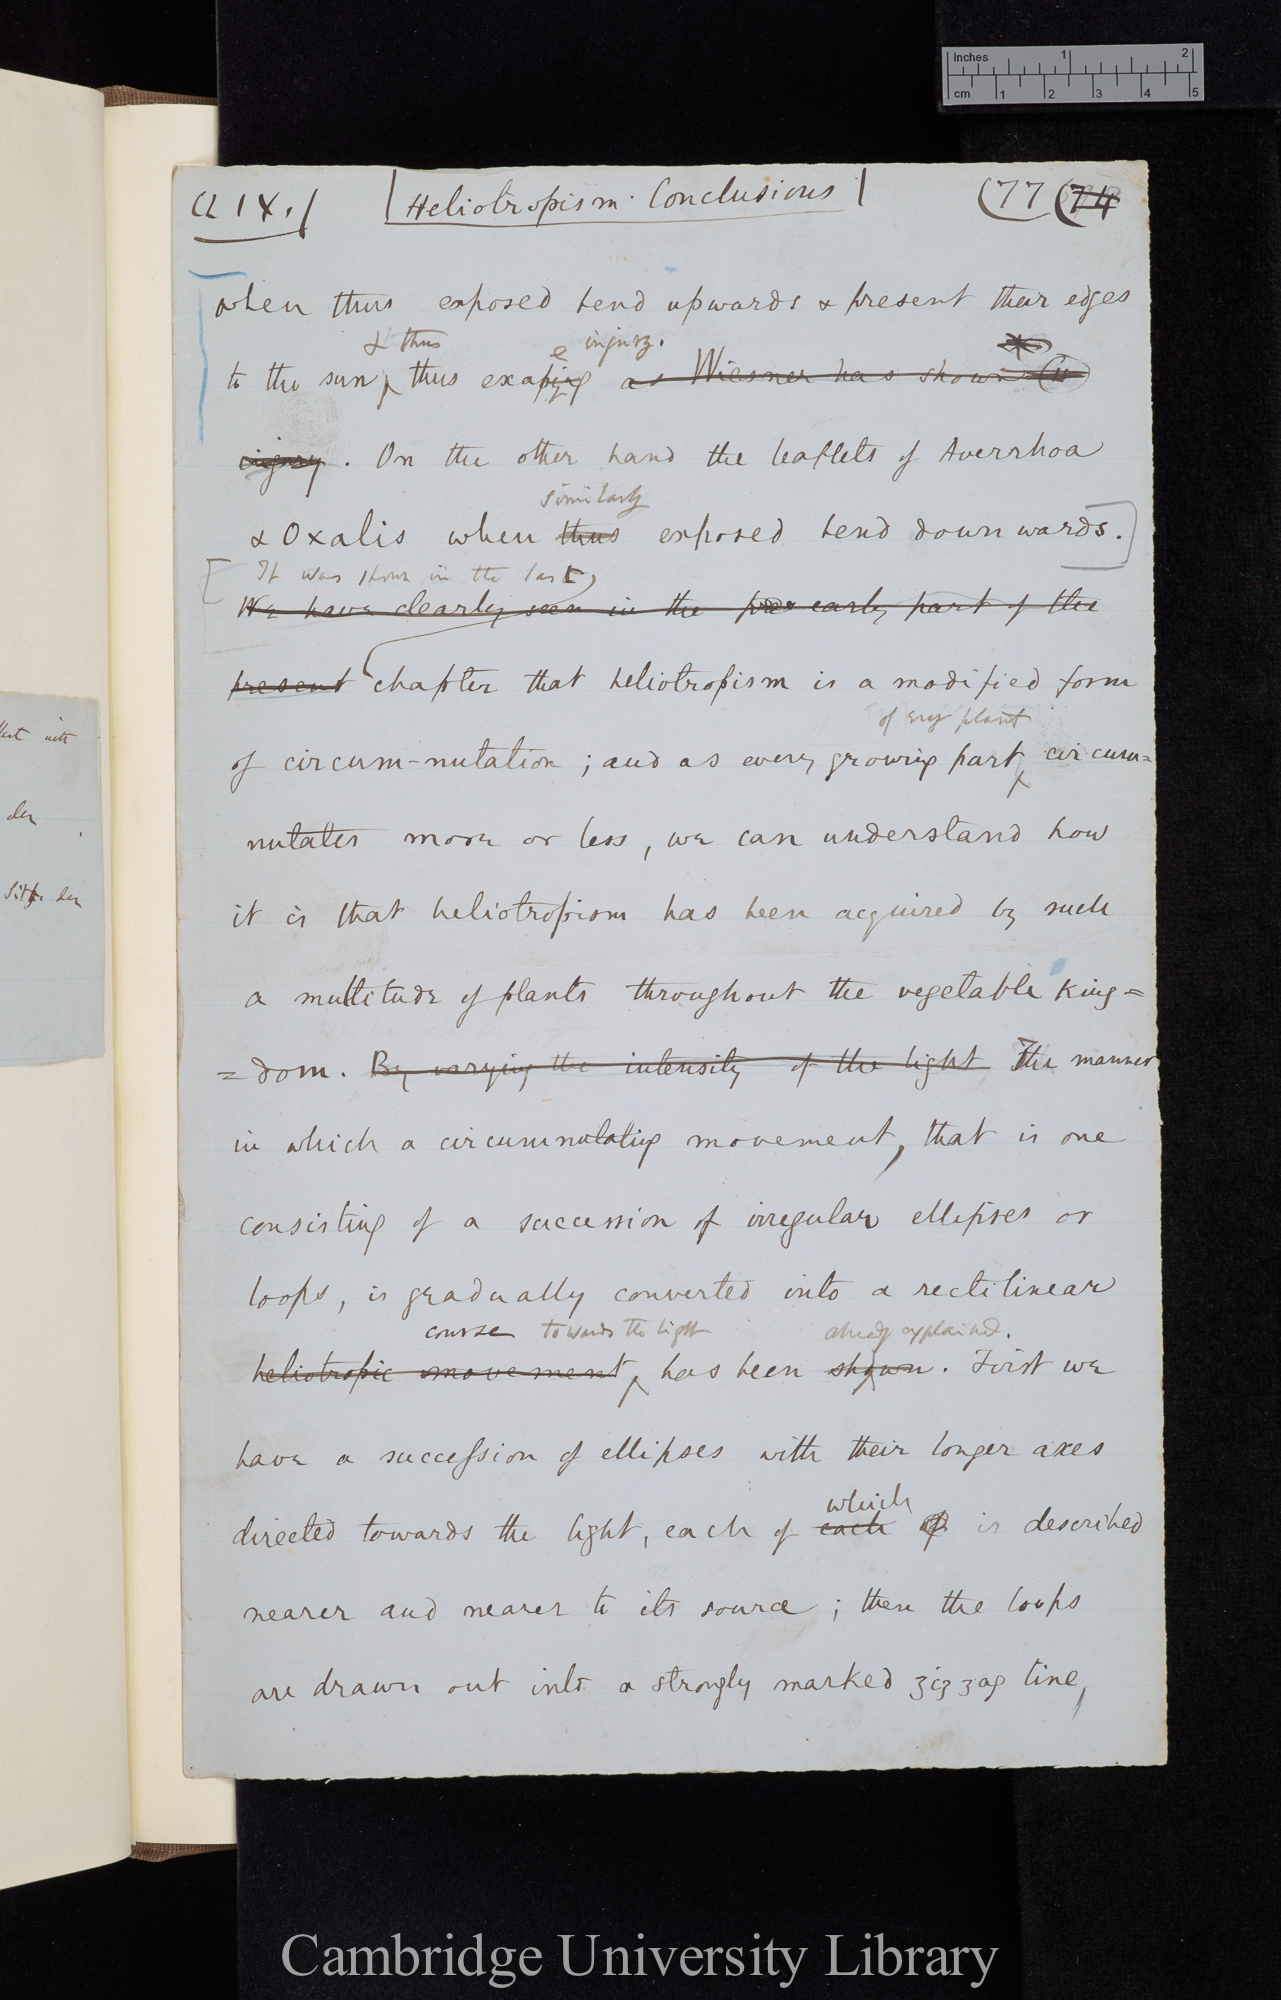 inches 1 2
cm 1 2 3 4 5
Ch IX.
Heliotropism. Conclusions
(77 (74
when thus exposed bend upwards & present their edges
& thus e injury.
to the sun, thus as Wiesner has shown
injury. On the other hand the leaflets of Averrhoa
similarly
& Oxalis when thus exposed bend downwards.
It was shown in the last
We have clearly seen in the early part of the
present chapter that heliotropism is a modified form
of every plant
of circum-nutation; and as every growing part circum=
nutates more or less, we can understand how
it is that heliotropism has been acquired by such
a multitude of plants throughout the vegetable king=
=dom. By varying the intensity of the light The manner
in which a circumnutating movement, that is one
consisting of a succession of irregular ellipses or
loops, is gradually converted into a rectilinear
course towards the light already explained.
heliotropic movement, has been shown. First we
have a succession of ellipses with their longer axes
which
directed towards the light, each of each of is described
nearer and nearer to its source; then the loops
are drawn out into a strongly marked zigzag line,
der
der
Cambridge University Library